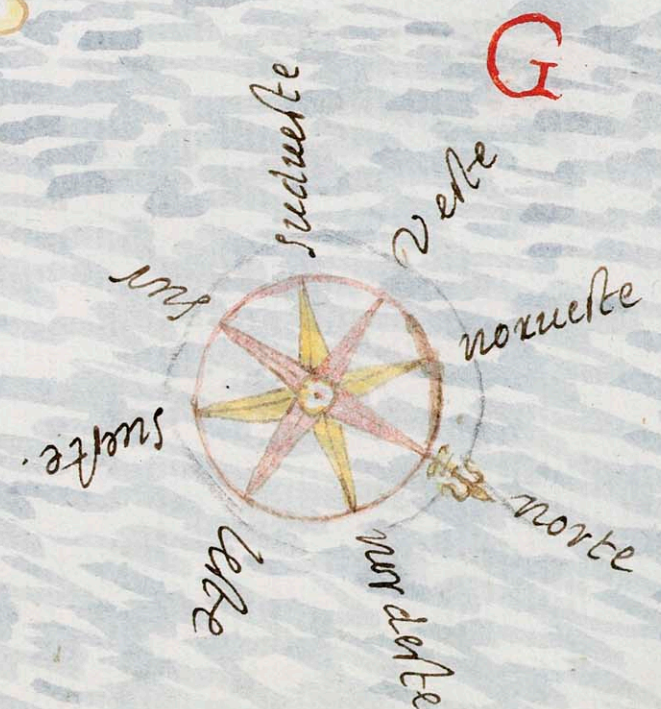 G
sudueste
veste
noxueste
norte
nordeste
leste
sueste.
sur